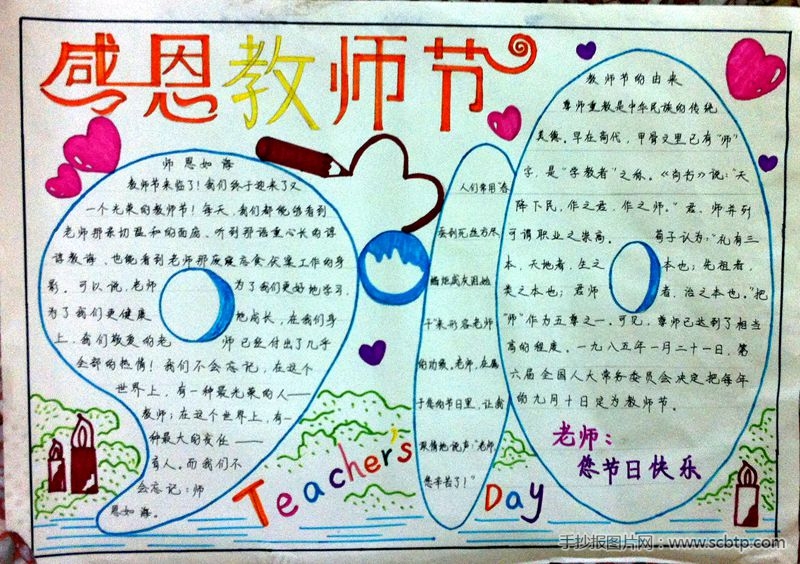 感恩教师节
师恩如海
教师节来临了！我们终于迎来了又
一个光荣的教师节！每天，我们都能够看到
老师那亲切温和的面庞、听到那语重心长的谆
谆教诲，也能看到老师那废寝忘食伏案工作的身
影。可以说，老师为了我们更好地学习，
为了我们更健康地成长，在我们身
上，我们敬爱的老师已经付出了几乎
全部的热情！我们不会忘记，在这个
世界上，有一种最光荣的人——
教师；在这个世界上，有一
种最大的责任——
育人。而我们不
会忘记：师
恩如海。
人们常用“春
蚕到死丝方尽
蜡炬成灰泪始
干”来形容老师
的功绩。老师，在属
于您的节日里，让我
深情地说声：“老师
您辛苦了！”
教师节的由来
尊师重教是中华民族的传统
美德。早在商代，甲骨文里已有“师”
字，是“学教者”之称。《尚书》说：“天
降下民，作之君，作之师。”君、师并列
可谓职业之崇高。荀子认为：“礼有三
本，天地者，生之本也；先祖者，
类之本也；君师者，治之本也。”把
“师”作为五尊之一。可见，尊师已达到了相当
高的程度。一九八五年一月二十一日，第
六届全国人大常务委员会决定把每年
的九月十日定为教师节。
老师：
您节日快乐
Teacher's Day
手抄报图片网：www.scbtp.com